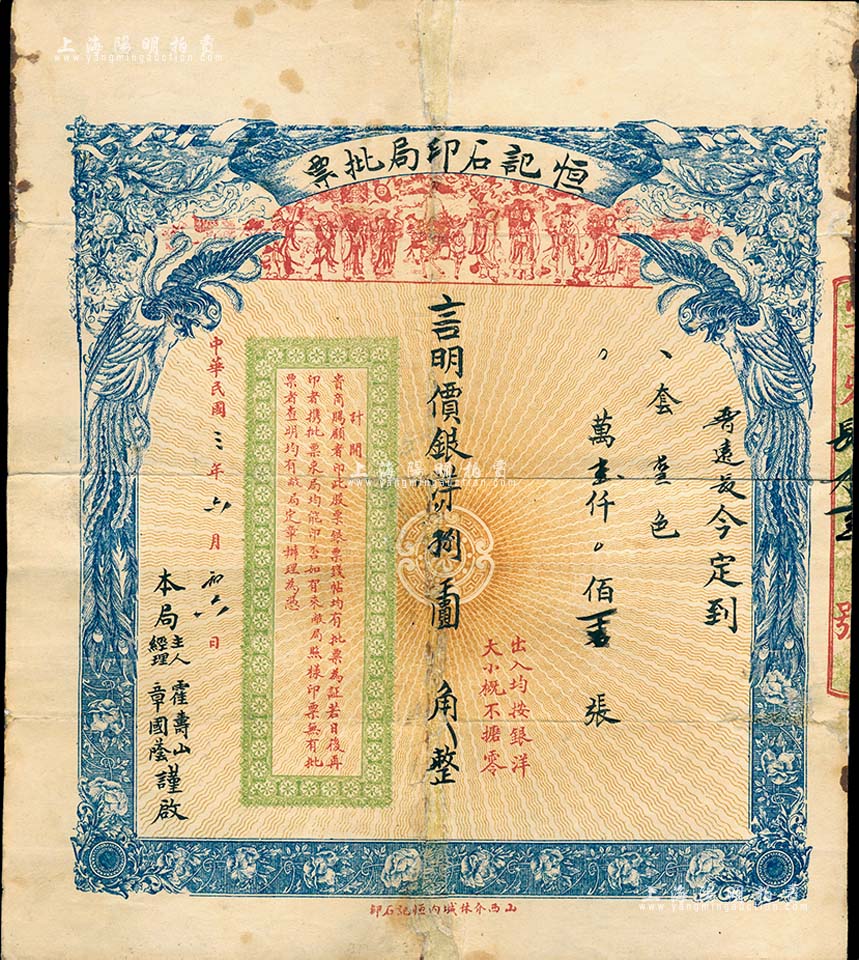 上海陽明拍賣
www.yangmingauction.com
恒記石印局批票
今定到
套 色
萬 仟 佰 張
出入均按銀洋
大小概不擄零
言明價銀 捌圓 角 整
計開
貴商賜顧者印此股票銀票錢帖均有批票為証若日後再
印者携批票來局均能印否如有來敝局照樣印票無有批
票者查明均有敝局定章辦理為憑
中華民國三年六月初六日
本局主人經理霍壽山章國蔭謹啟
號
山西介休城内恒記石印
上海陽明拍賣
www.yangmingauction.com
上海陽明拍賣
www.yangmingauction.com